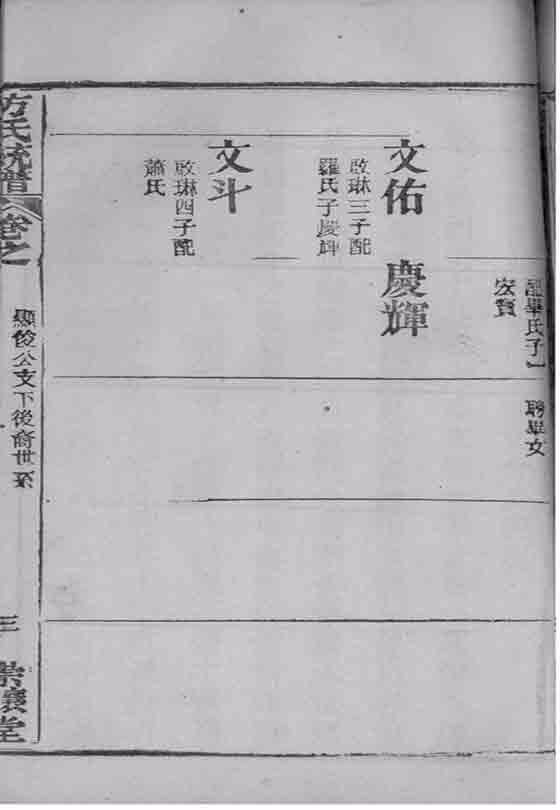 配畢氏子一
宏賢
聘畢女
文佑
啟琳三子配
羅氏子慶輝
慶輝
文斗
啟琳四子配
蕭氏
方氏統譜
卷之
顯俊公支下後裔世系
三
堂